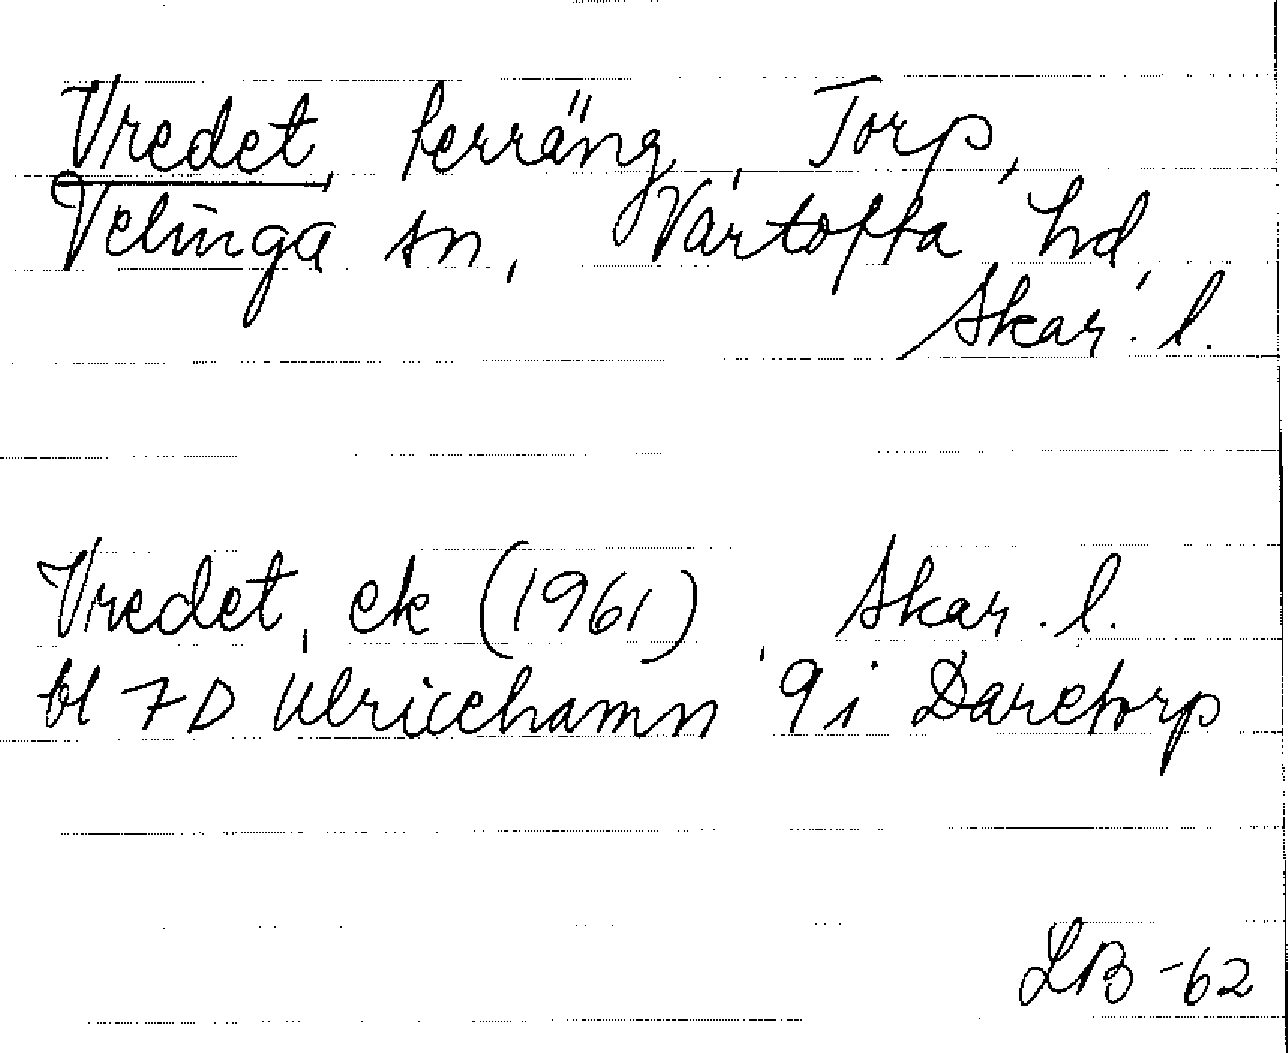 Vredet, terräng, Torp,
Velinga sn, Vartofta hd,
Skar. l.
Vredet, ek (1961), Skar. l.
bl 7D Ulricehamn 9i Daretorp
LB -62